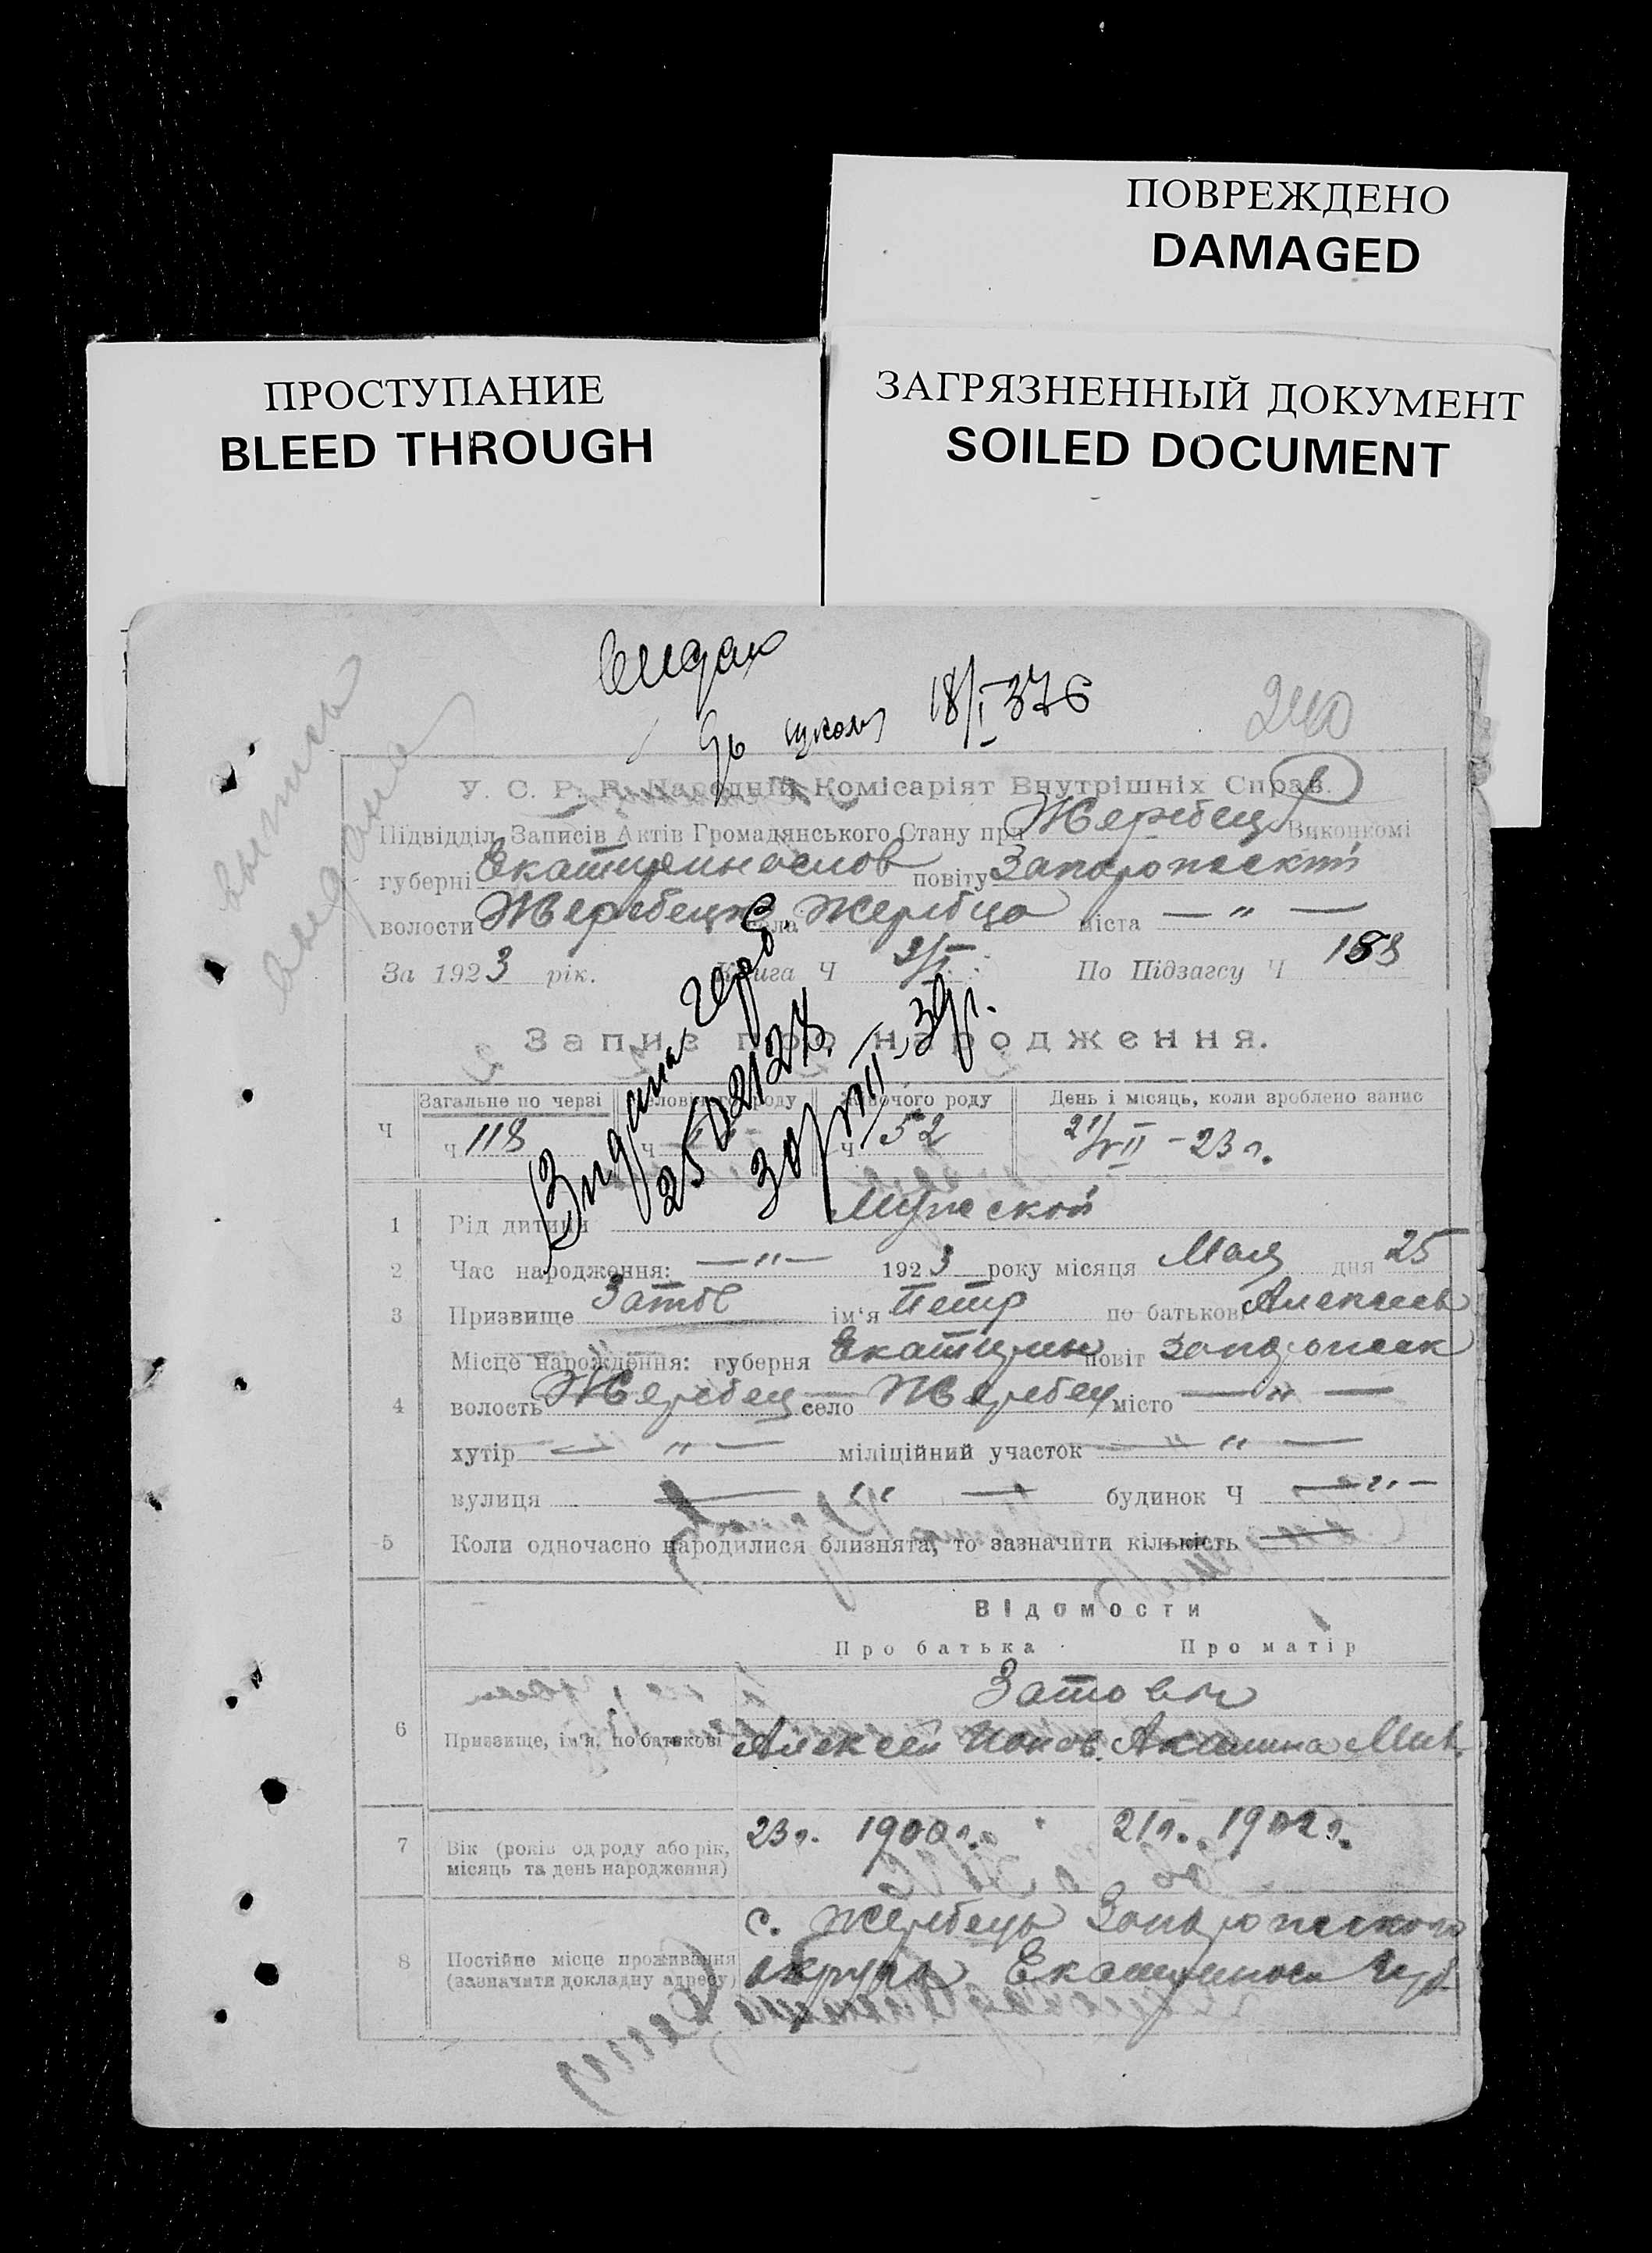 ПОВРЕЖДЕНО
DAMAGED
ПРОСТУПАНИЕ
BLEED THROUGH
ЗАГРЯЗНЕННЫЙ ДОКУМЕНТ
SOILED DOCUMENT
18/I 37
240
выпись
выдана
У. С. Р. Р. Народній Комісаріят Внутрішніх Справ.
Підвідділ Записів Актів Громадянського Стану при Жеребец Виконкомі
губерні Екатеринослов повіту Запорожский
волости Жеребецк села Жеребца міста — " —
За 1923 рік. Книга Ч По Підзагсу Ч 188
Запис про народження.
Загальне по черзі Чоловічого роду Жіночого роду День і місяць, коли зроблено запис
Ч Ч 118 Ч Ч 52 21/VII - 23 г.
1 Рід дитини Мужской
2 Час народження: — " — 1923 року місяця Мая дня 25
3 Призвище Затов ім'я Петр по батькові Алексеев
Місце народження: губерня Екатерин повіт Запорожск
4 волость Жеребец село Жеребец місто — " —
хутір — " — міліційний участок — " —
вулиця — " — будинок Ч — " —
5 Коли одночасно народилися близнята, то зазначити кількість —
Відомости
Про батька Про матір
Затовы
6 Призвище, ім'я, по батькові Алексей Акилина
7 Вік (років од роду або рік, 23 г. 1900 г. 21 г. 1902 г.
місяць та день народження)
с. Жеребець Запорожского
8 Постійне місце проживання
(зазначити докладну адресу) округа Екатериносл Губ